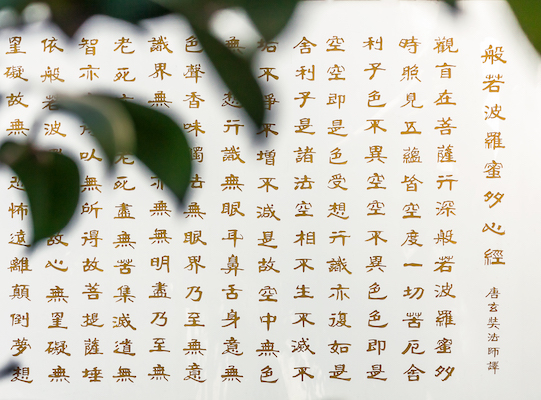 般若波羅蜜多心經
唐玄奘法師譯
觀自在菩薩行深般若波羅蜜多
時照見五蘊皆空度一切苦厄舍
利子色不異空空不異色色即是
空空即是色受想行識亦復如是
舍利子是諸法空相不生不滅不
垢不淨不增不減是故空中無色
無想行識無眼耳鼻舌身意無
色聲香味觸法無眼界乃至無意
識界無亦無無明盡乃至無
老死亦老死盡無苦集滅道無
智亦得以無所得故菩提薩埵
依般若波故心無罣礙無
罣礙故無恐怖遠離顛倒夢想